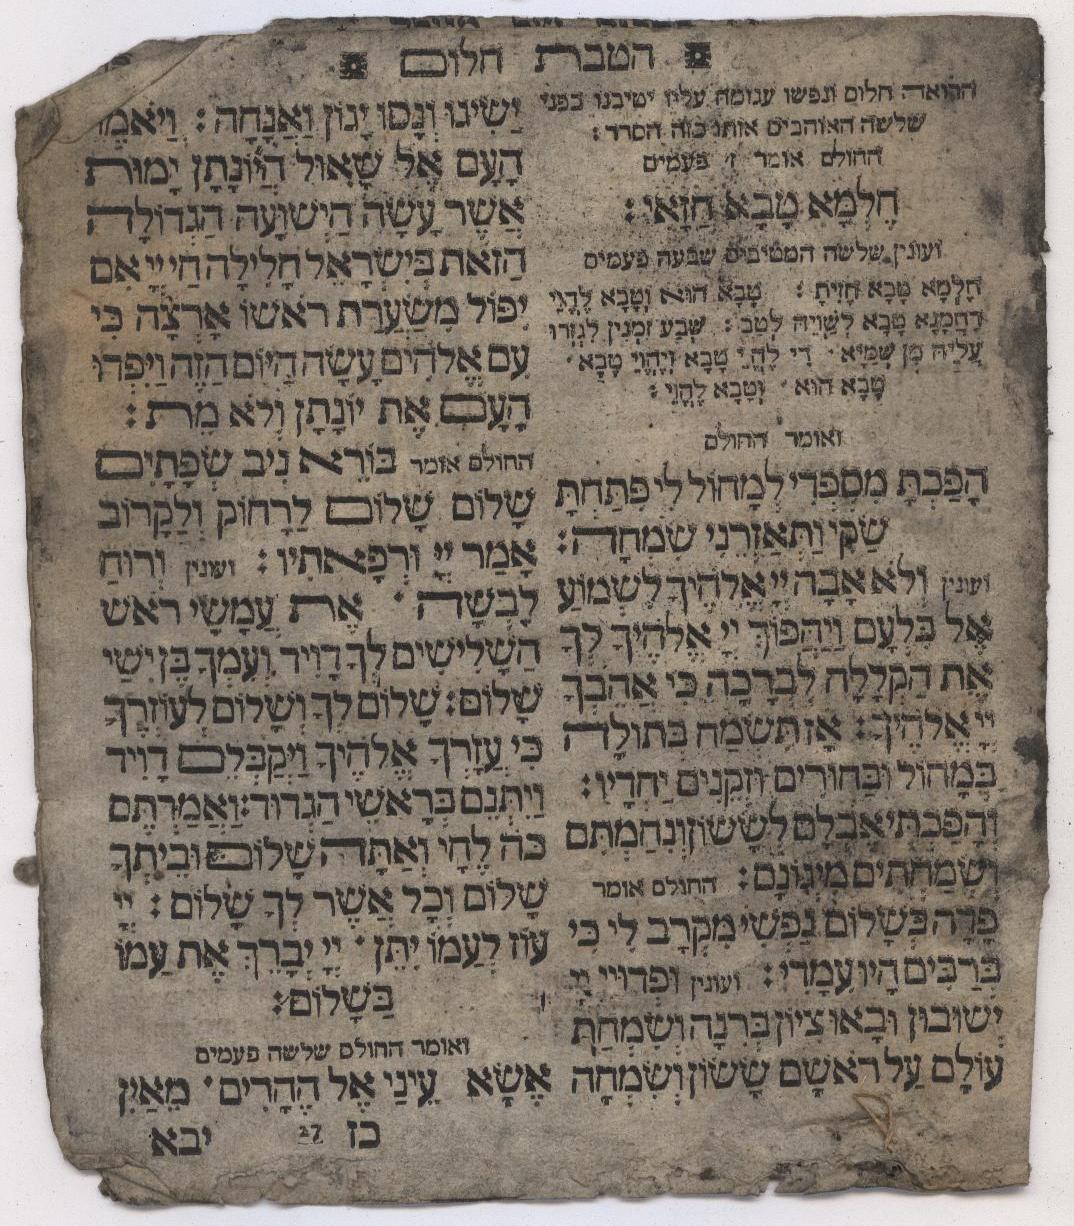 הטבת חלום
הרואה חלום ונפשו עגומה עליו יטיבנו בפני
שלשה האוהבים אותו כזה הסדר:
החולם אומר ז׳ פעמים
חֶלְמָא טָבָא חֲזָאִי:
ועונין שלשה המטיבים שבעה פעמים
חֶלְמָא טָבָא חֲזֵיתָ: טָבָא הוּא וְטָבָא לֶהֱוֵי
רַחֲמָנָא טָבָא לִשַׁוְיֵהּ לְטַב: שְׁבַע זִמְנִין לִגְזְרוּ
עֲלֵיהּ מִן שְׁמַיָּא׳ דִּי לֶהֱוֵי טָבָא וְיֶהֱוֵי טָבָא׳
טָבָא הוּא׳ וְטָבָא לֶהֱוֵי:
ואומר החולם
הָפַכְתָּ מִסְפְּדִי לְמָחוֹל לִי פִּתַּחְתָּ
שַׂקִּי וַתְּאַזְּרֵנִי שִׂמְחָה:
ועונין וְלֹא אָבָה יְיָ אֱלֹהֶיךָ לִשְׁמוֹעַ
אֶל בִּלְעָם וַיַּהֲפוֹךְ יְיָ אֱלֹהֶיךָ לְךָ
אֶת הַקְּלָלָה לִבְרָכָה כִּי אֲהֵבְךָ
יְיָ אֱלֹהֶיךָ: אָז תִּשְׂמַח בְּתוּלָה
בְּמָחוֹל וּבַחוּרִים וּזְקֵנִים יַחְדָּיו:
וְהָפַכְתִּי אֶבְלָם לְשָׂשׂוֹן וְנִחַמְתִּים
וְשִׂמַּחְתִּים מִיגוֹנָם: החולם אומר
פָּדָה בְשָׁלוֹם נַפְשִׁי מִקְּרָב לִי כִּי
בְרַבִּים הָיוּ עִמָּדִי: ועונין וּפְדוּיֵי יְיָ
יְשׁוּבוּן וּבָאוּ צִיּוֹן בְּרִנָּה וְשִׂמְחַת
עוֹלָם עַל רֹאשָׁם שָׂשׂוֹן וְשִׂמְחָה
יַשִּׂיגוּ וְנָסוּ יָגוֹן וַאֲנָחָה: וַיֹּאמֶר
הָעָם אֶל שָׁאוּל הֲיוֹנָתָן יָמוּת
אֲשֶׁר עָשָׂה הַיְשׁוּעָה הַגְּדוֹלָה
הַזֹּאת בְּיִשְׂרָאֵל חָלִילָה חַי יְיָ אִם
יִפּוֹל מִשַּׂעֲרַת רֹאשׁוֹ אָרְצָה כִּי
עִם אֱלֹהִים עָשָׂה הַיּוֹם הַזֶּה וַיִּפְדּוּ
הָעָם אֶת יוֹנָתָן וְלֹא מֵת:
החולם אומר בּוֹרֵא נִיב שְׂפָתָיִם
שָׁלוֹם שָׁלוֹם לָרָחוֹק וְלַקָּרוֹב
אָמַר יְיָ וּרְפָאתִיו: ועונין וְרוּחַ
לָבְשָׁה׳ אֶת עֲמָשַׂי רֹאשׁ
הַשָּׁלִישִׁים לְךָ דָוִיד וְעִמְּךָ בֶּן יִשַׁי
שָׁלוֹם: שָׁלוֹם לְךָ וְשָׁלוֹם לְעוֹזְרֶךָ
כִּי עֲזָרְךָ אֱלֹהֶיךָ וַיְקַבְּלֵם דָּוִיד
וַיִּתְּנֵם בְּרָאשֵׁי הַגְּדוּד: וַאֲמַרְתֶּם
כֹּה לֶחָי וְאַתָּה שָׁלוֹם וּבֵיתְךָ
שָׁלוֹם וְכָל אֲשֶׁר לְךָ שָׁלוֹם: יְיָ
עוֹז לְעַמּוֹ יִתֵּן׳ יְיָ יְבָרֵךְ אֶת עַמּוֹ
בַשָּׁלוֹם:
ואומר החולם שלשה פעמים
אֶשָּׂא עֵינַי אֶל הֶהָרִים׳ מֵאַיִן
כז יבא